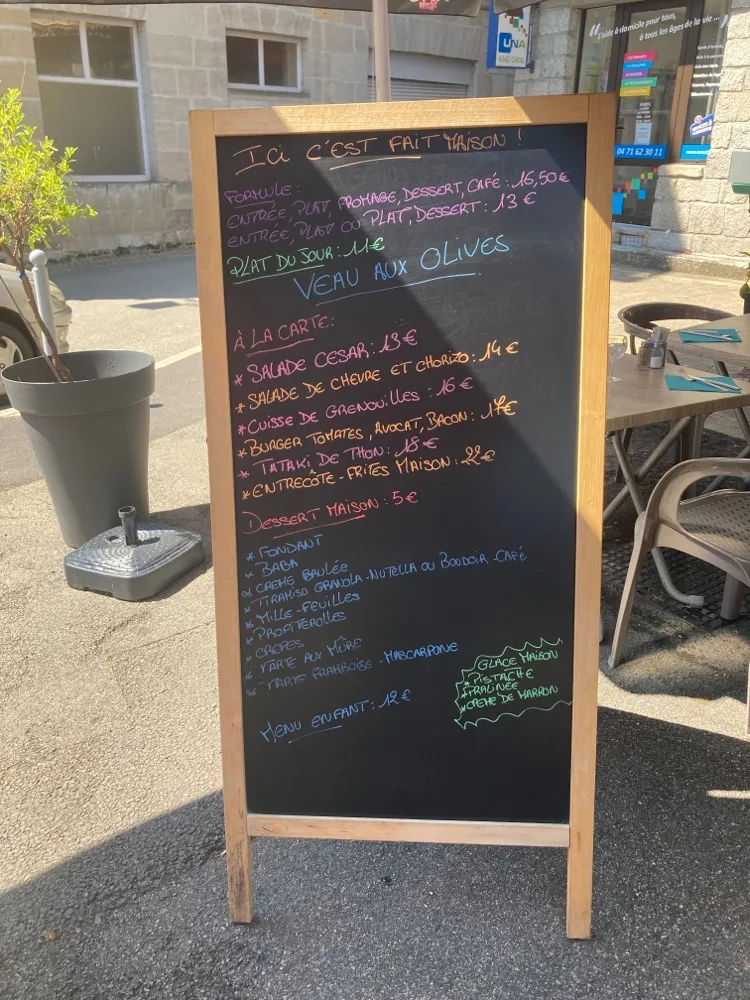 UNA
"L'aide à domicile pour tous,
à tous les âges de la vie..."
04 71 62 30 11
ICI C'EST FAIT MAISON !
FORMULE :
ENTRÉE, PLAT, FROMAGE, DESSERT, CAFÉ : 16,50€
ENTRÉE, PLAT OU PLAT, DESSERT : 13 €
PLAT DU JOUR : 11€
VEAU AUX OLIVES
À LA CARTE :
* SALADE CESAR : 13€
* SALADE DE CHEVRE ET CHORIZO : 14 €
* CUISSE DE GRENOUILLES : 16 €
* BURGER TOMATES, AVOCAT, BACON : 17€
* TATAKI DE THON : 18 €
* ENTRECÔTE - FRITES MAISON : 22€
DESSERT MAISON : 5 €
* FONDANT
* BABA
* CREME BRULÉE
* TIRAMISO GRANOLA - NUTELLA OU BOUDOIR - CAFÉ
* MILLE - FEUILLES
* PROFITEROLLES
* CREPES
* TARTE AUX MÛRE
* TARTE FRAMBOISE - MASCARPONE
GLACE MAISON
* PISTACHE
* PRALINÉE
* CREME DE MARRON
MENU ENFANT : 12 €